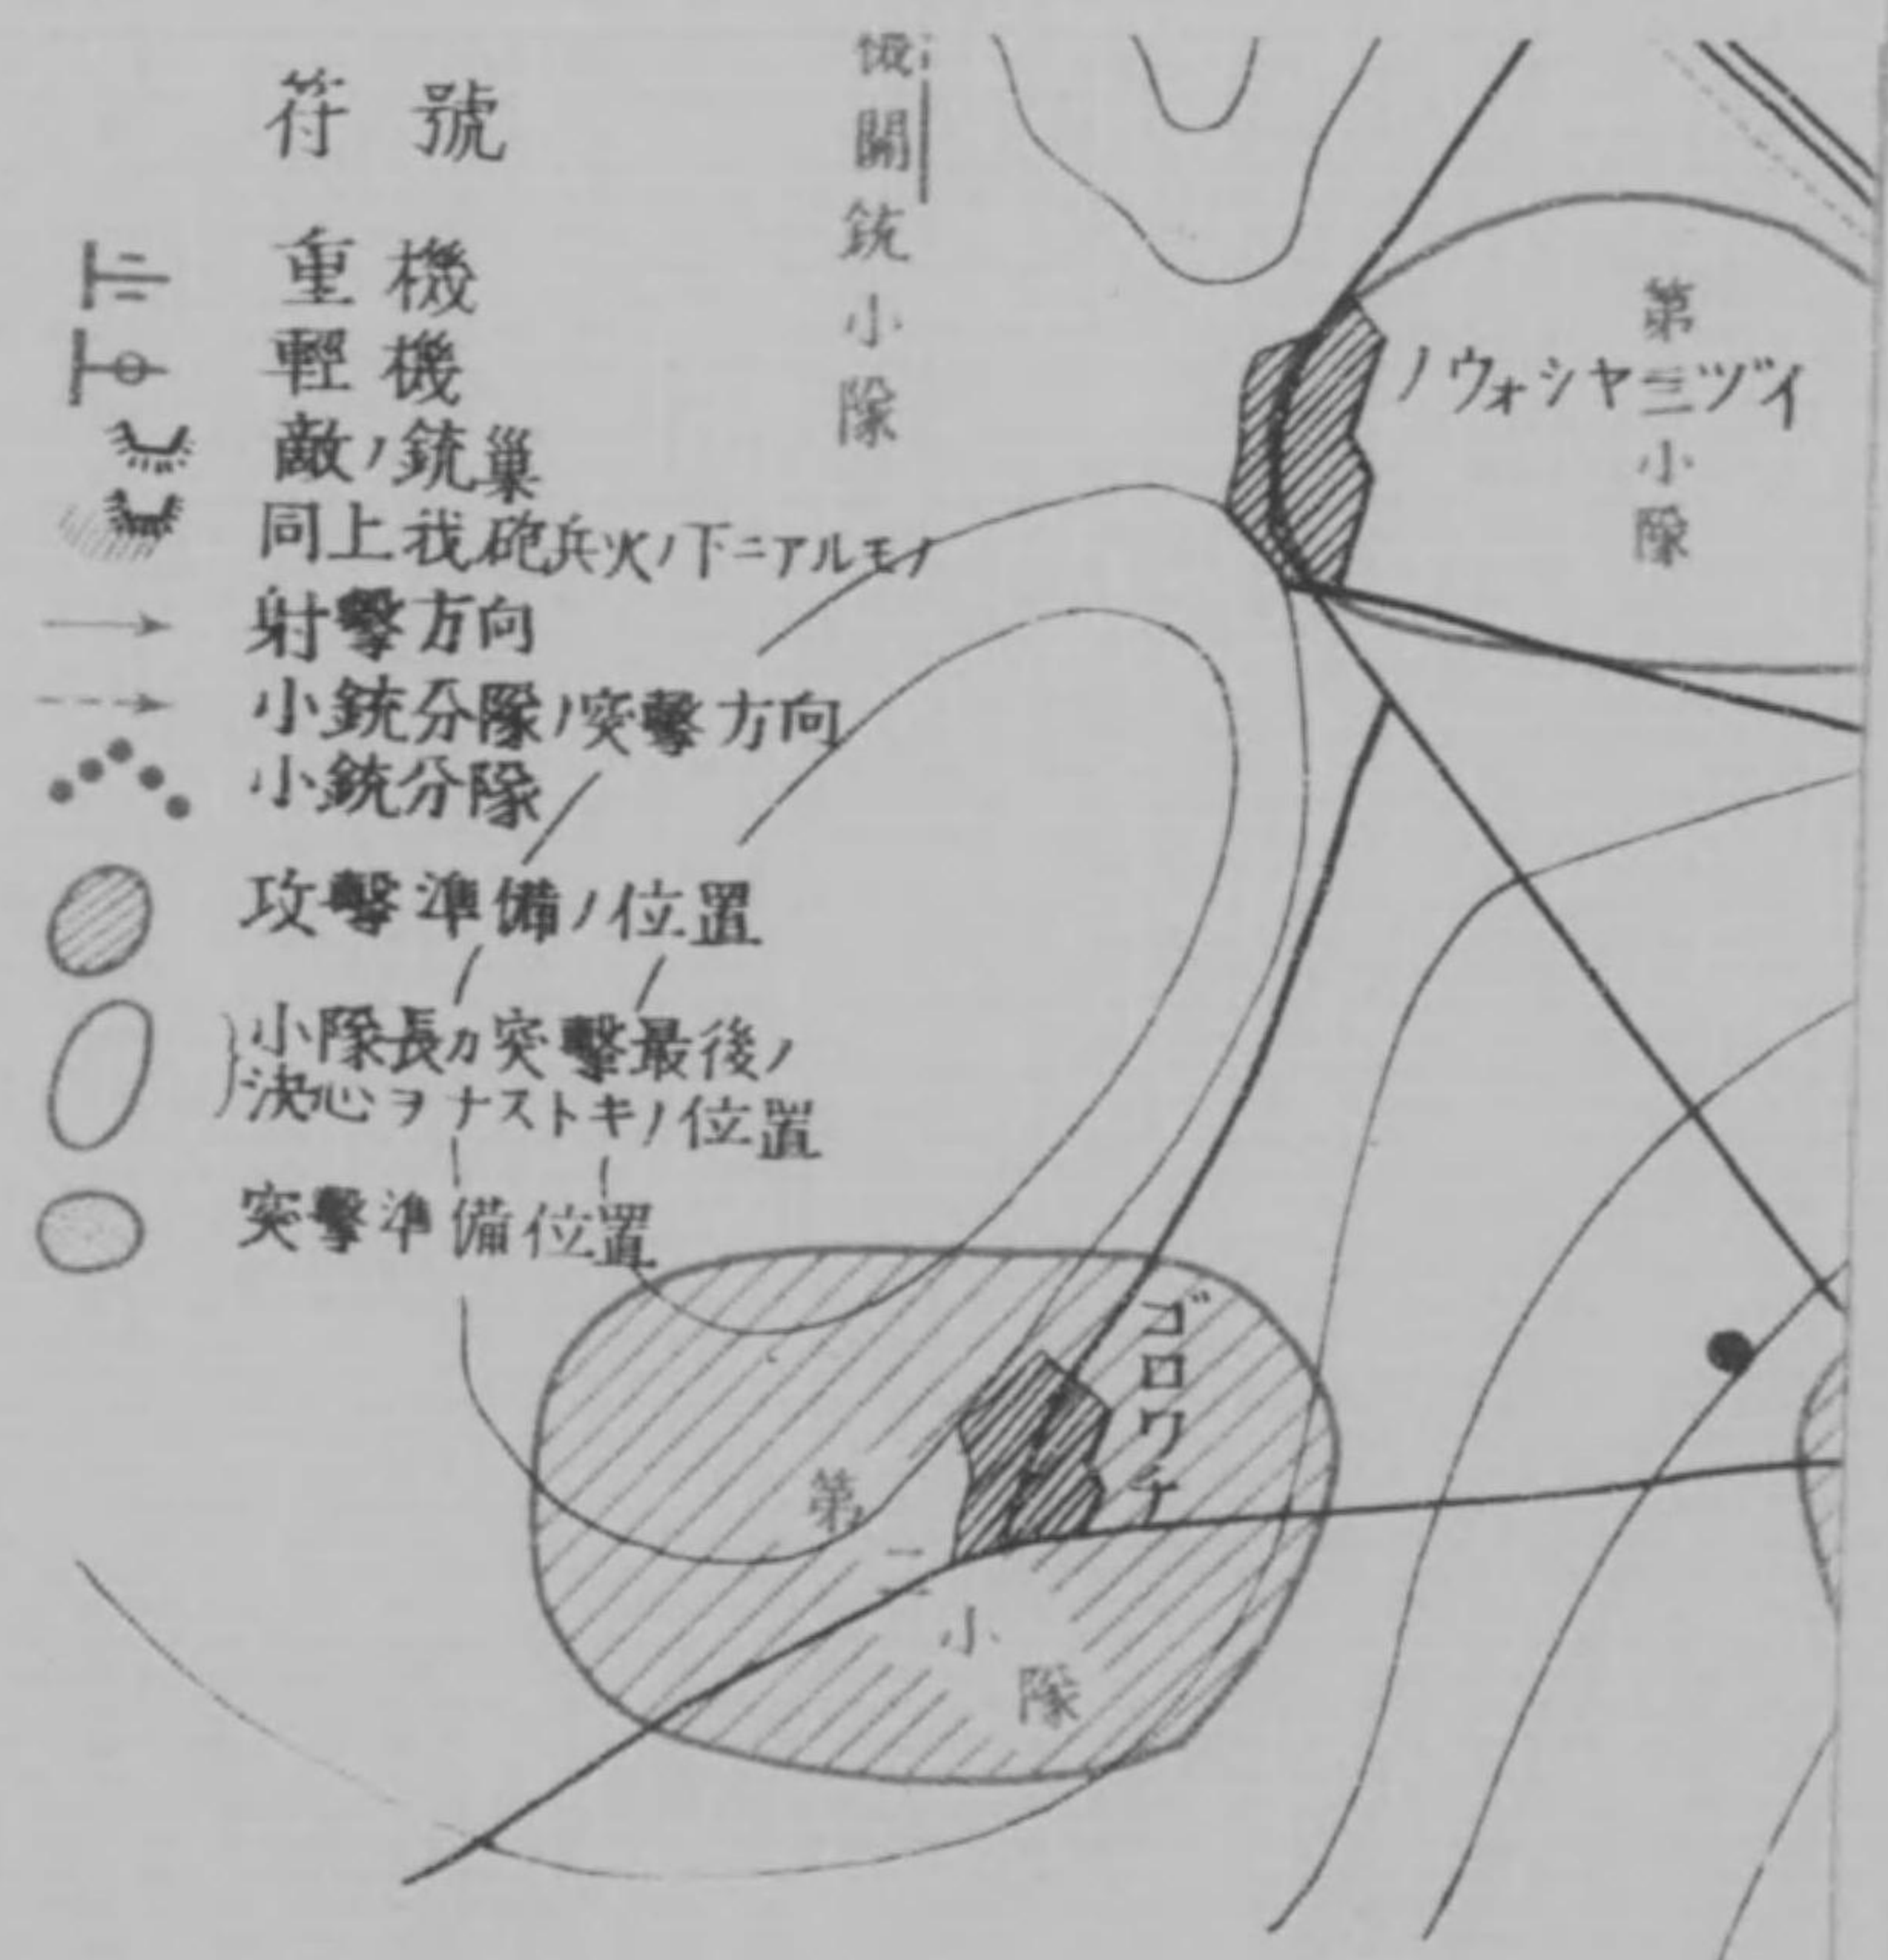 符號
重機
輕機
敵ノ銃巢
同上我砲兵火ノ下ニアルモノ
射擊方向
小銃分隊ノ突擊方向
小銃分隊
攻擊準備ノ位置
小隊長カ突擊最後ノ
決心ヲナストキノ位置
突擊準備位置
機關銃小隊
第三小隊
ノウォシヤツヅイ
ゴロワチ
第二小隊